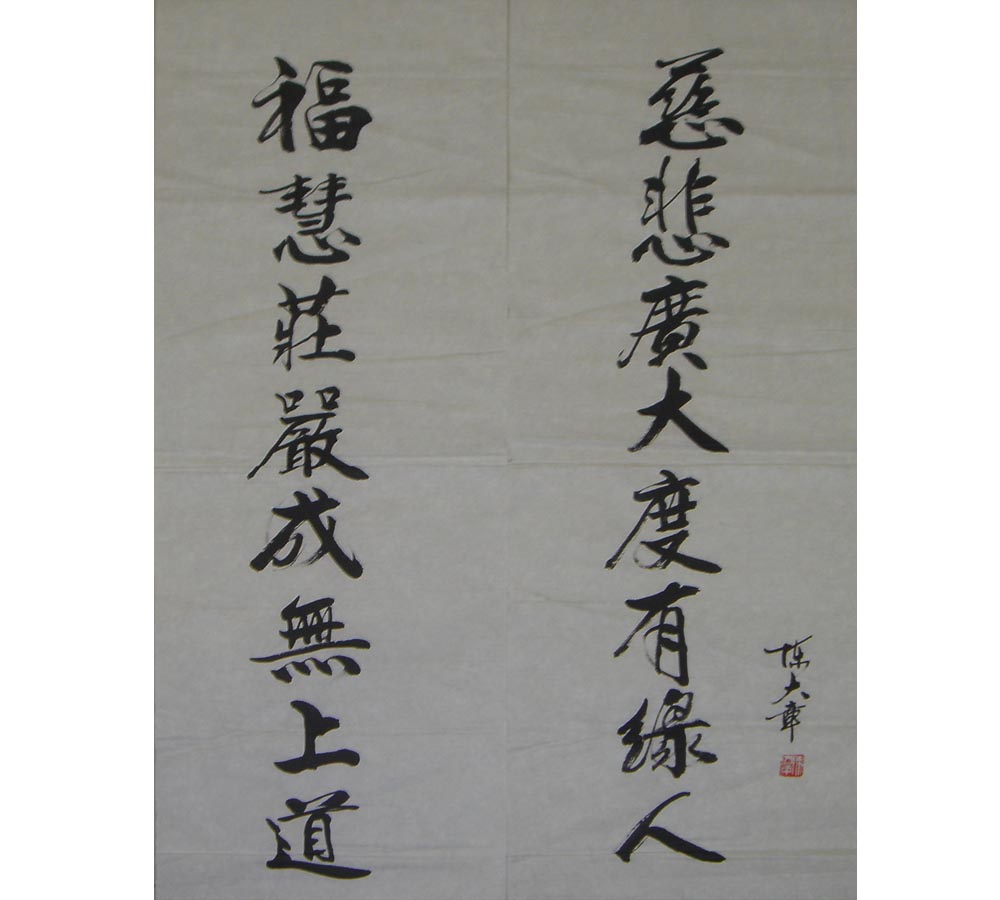 慈悲廣大度有緣人
福慧莊嚴成無上道
陳大章